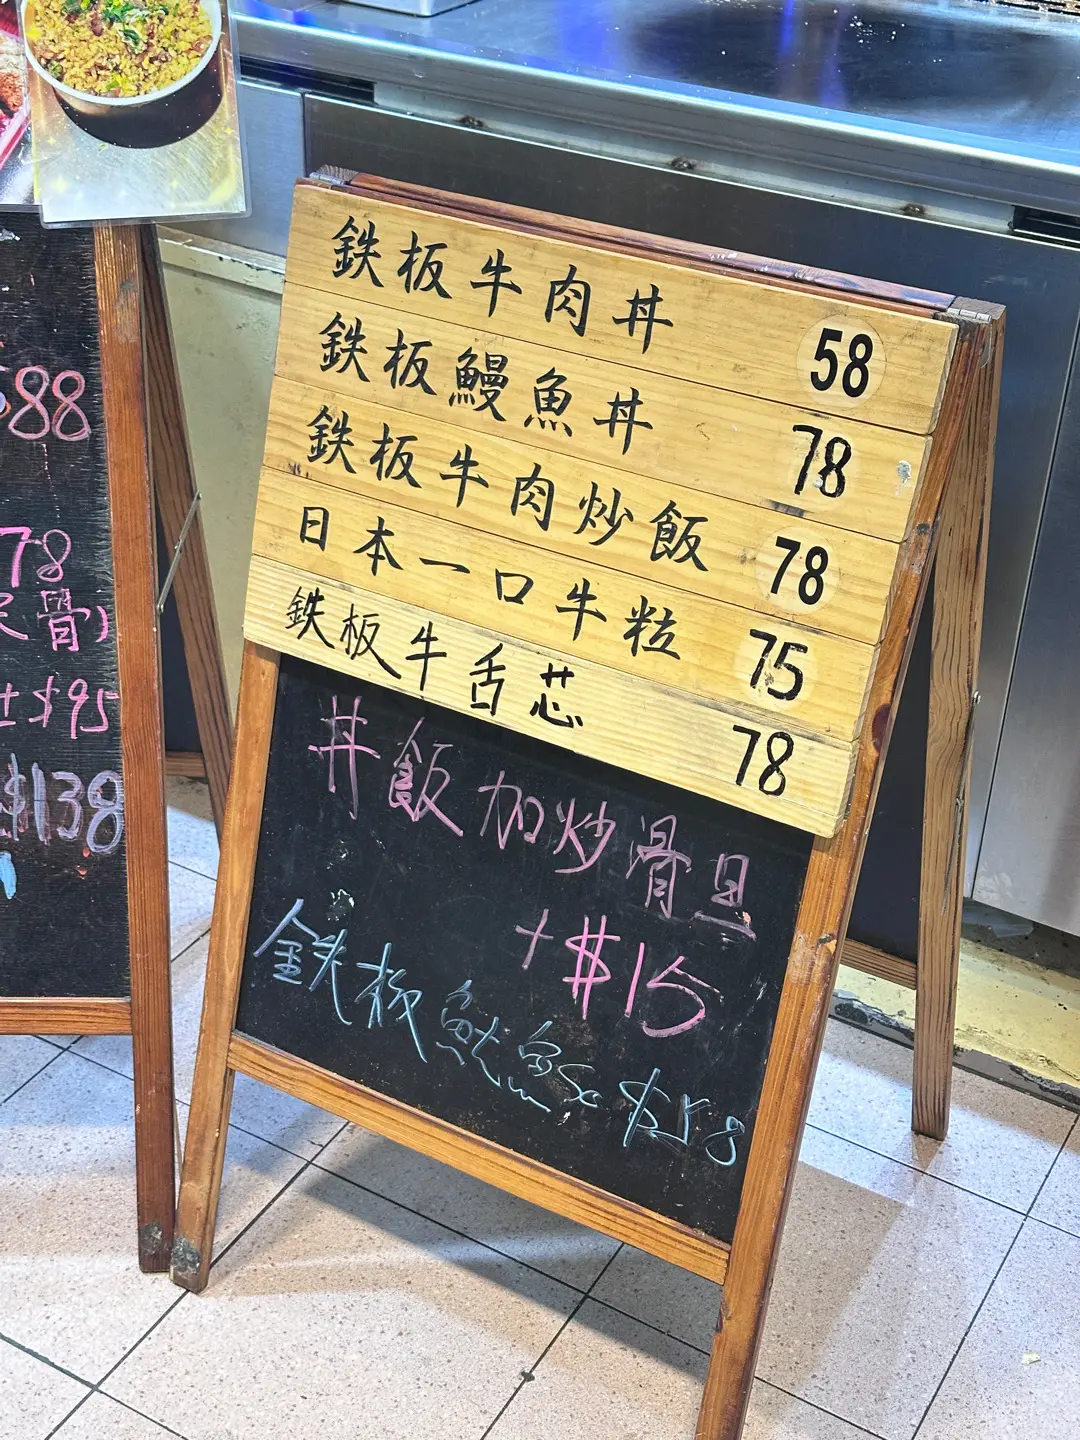 鉄板牛肉丼 58
鉄板鰻魚丼 78
鉄板牛肉炒飯 78
日本一口牛粒 75
鉄板牛舌芯 78
丼飯加炒滑旦
+$15
鉄板魷魚 $58
88
78
骨)
$95
$138